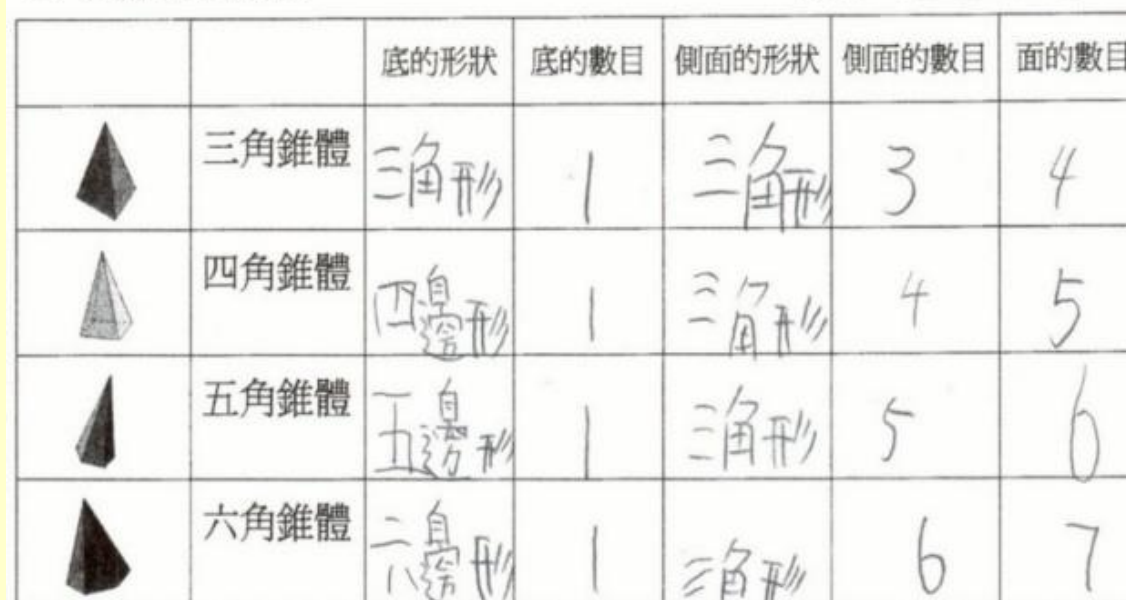 底的形狀 底的數目 側面的形狀 側面的數目 面的數目
三角錐體 三角形 1 三角形 3 4
四角錐體 四邊形 1 三角形 4 5
五角錐體 五邊形 1 三角形 5 6
六角錐體 六邊形 1 三角形 6 7